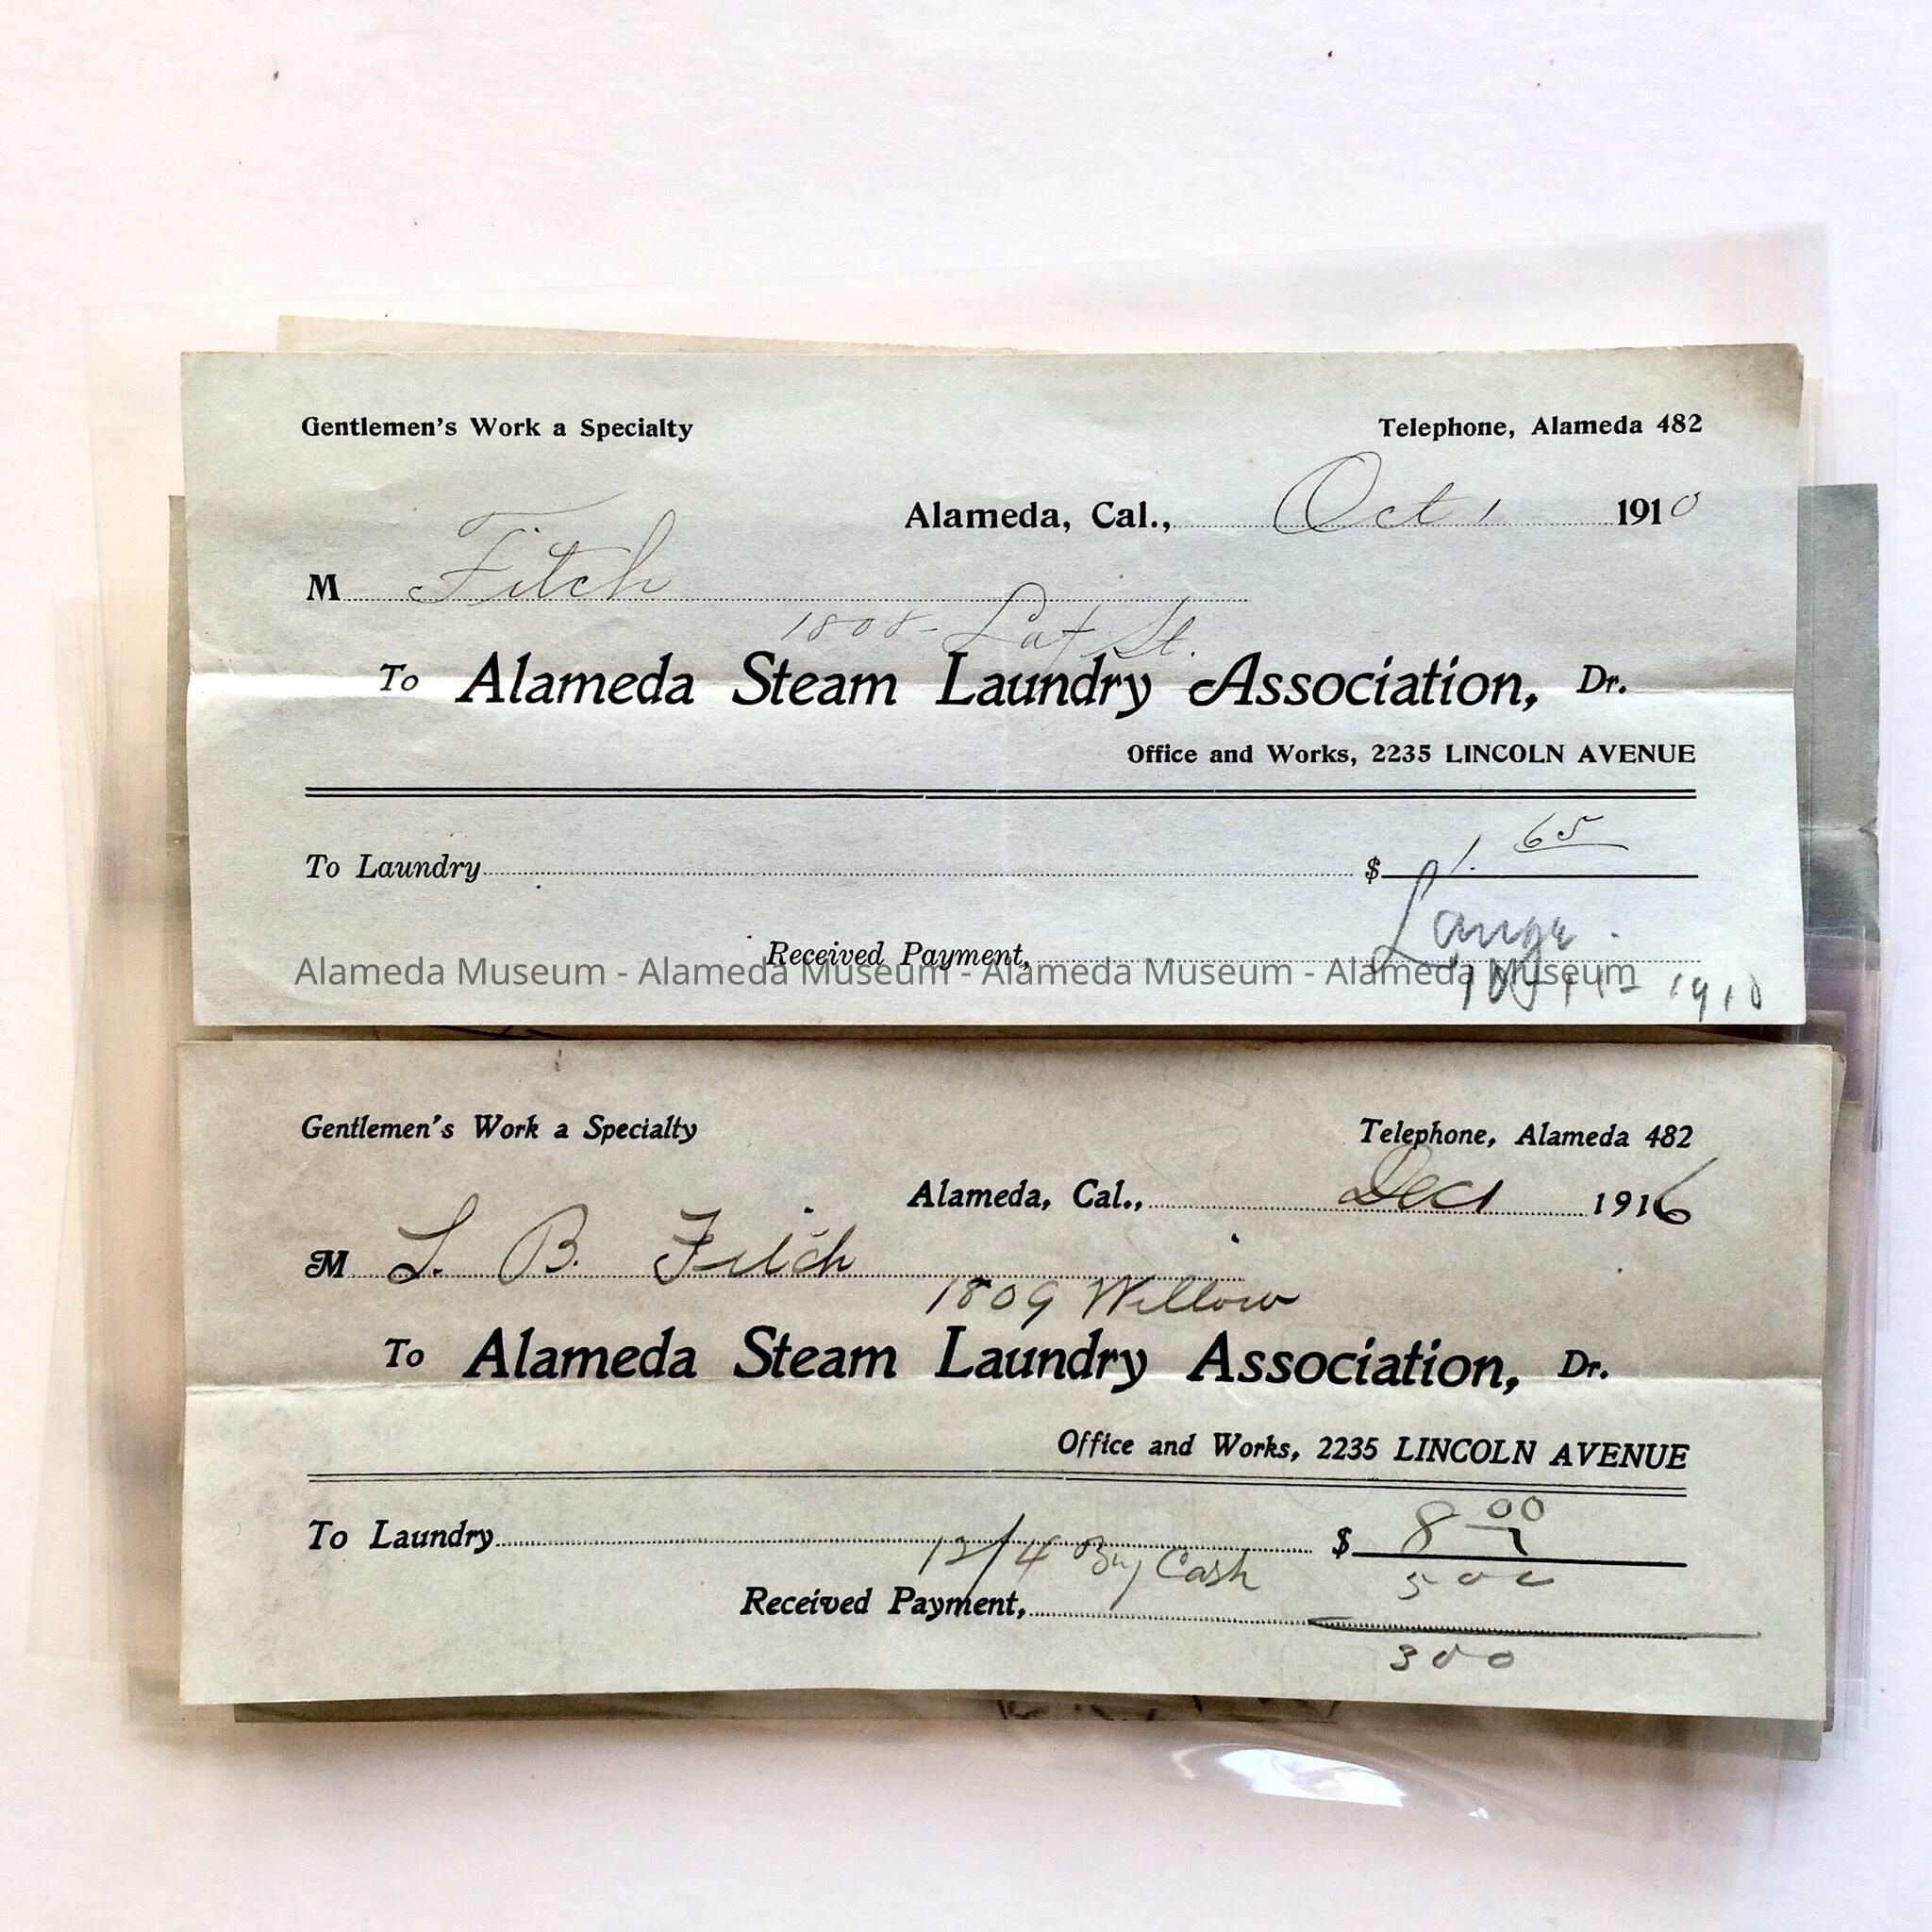 Gentlemen's Work a Specialty Telephone, Alameda 482
Alameda, Cal., Oct 1 1910
M Fitch
1808 - Laf St.
To Alameda Steam Laundry Association, Dr.
Office and Works, 2235 LINCOLN AVENUE
To Laundry $ 1.65
Received Payment, Lange
Alameda Museum - Alameda Museum - Alameda Museum - Alameda Museum
1910
Gentlemen's Work a Specialty Telephone, Alameda 482
Alameda, Cal., Dec 1 1916
M L. B. Fitch
1809 Willow
To Alameda Steam Laundry Association, Dr.
Office and Works, 2235 LINCOLN AVENUE
To Laundry $ 8 00
12/4 By Cash 500
Received Payment,
300